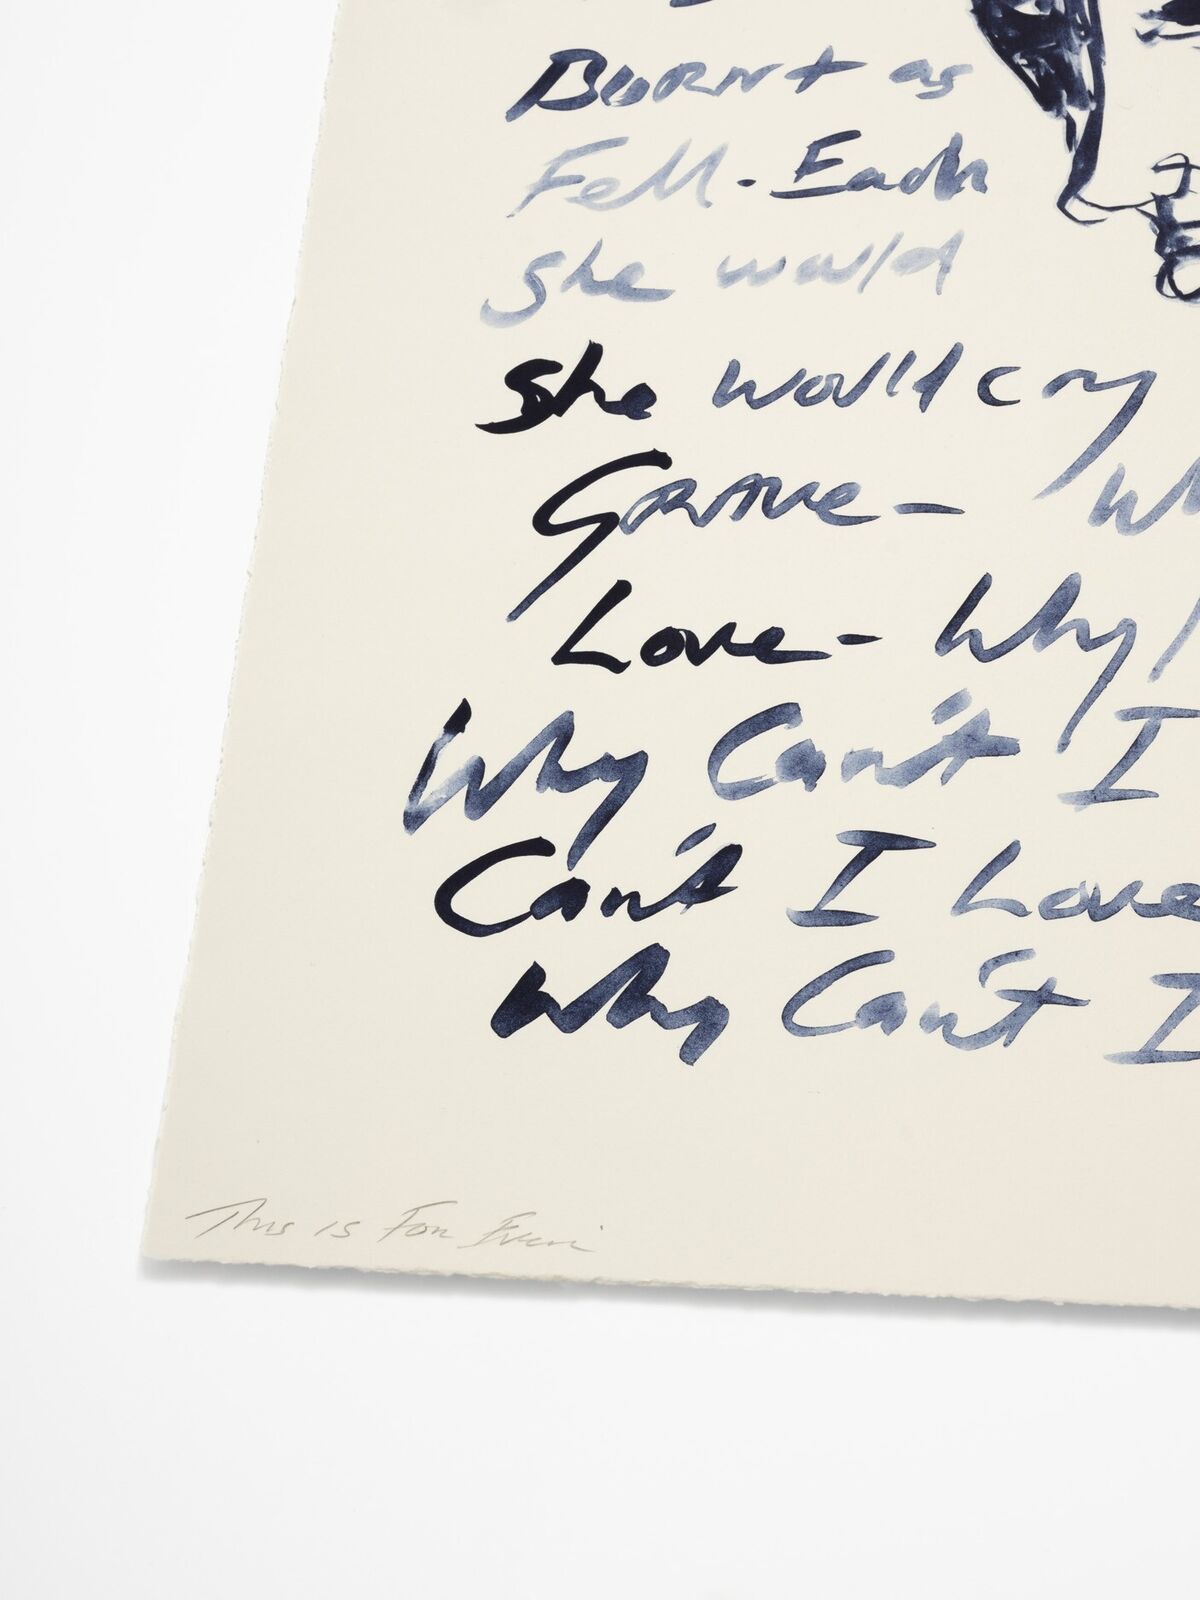 Burnt as
Fell. Each
She would
She would cry
Grave -
Love - Why
Why Can't I
Can't I Love
Why Can't I
This is For